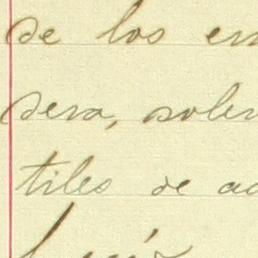 de los em
dera, solem
tiles de ac